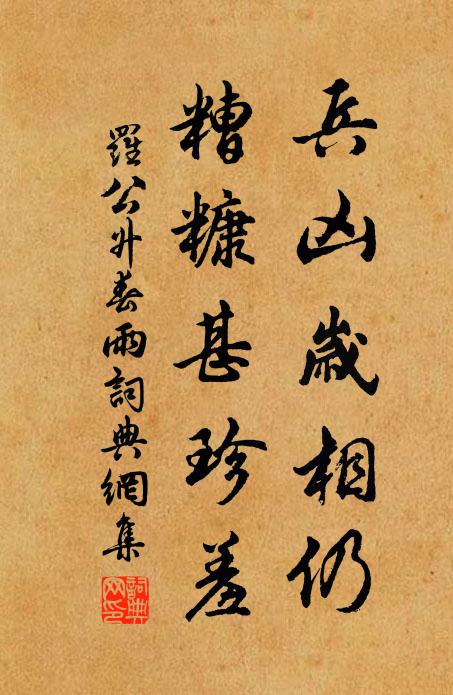 兵凶歲相仍
糟糠甚珍羞
羅公升春雨詞典網集
詞典網印